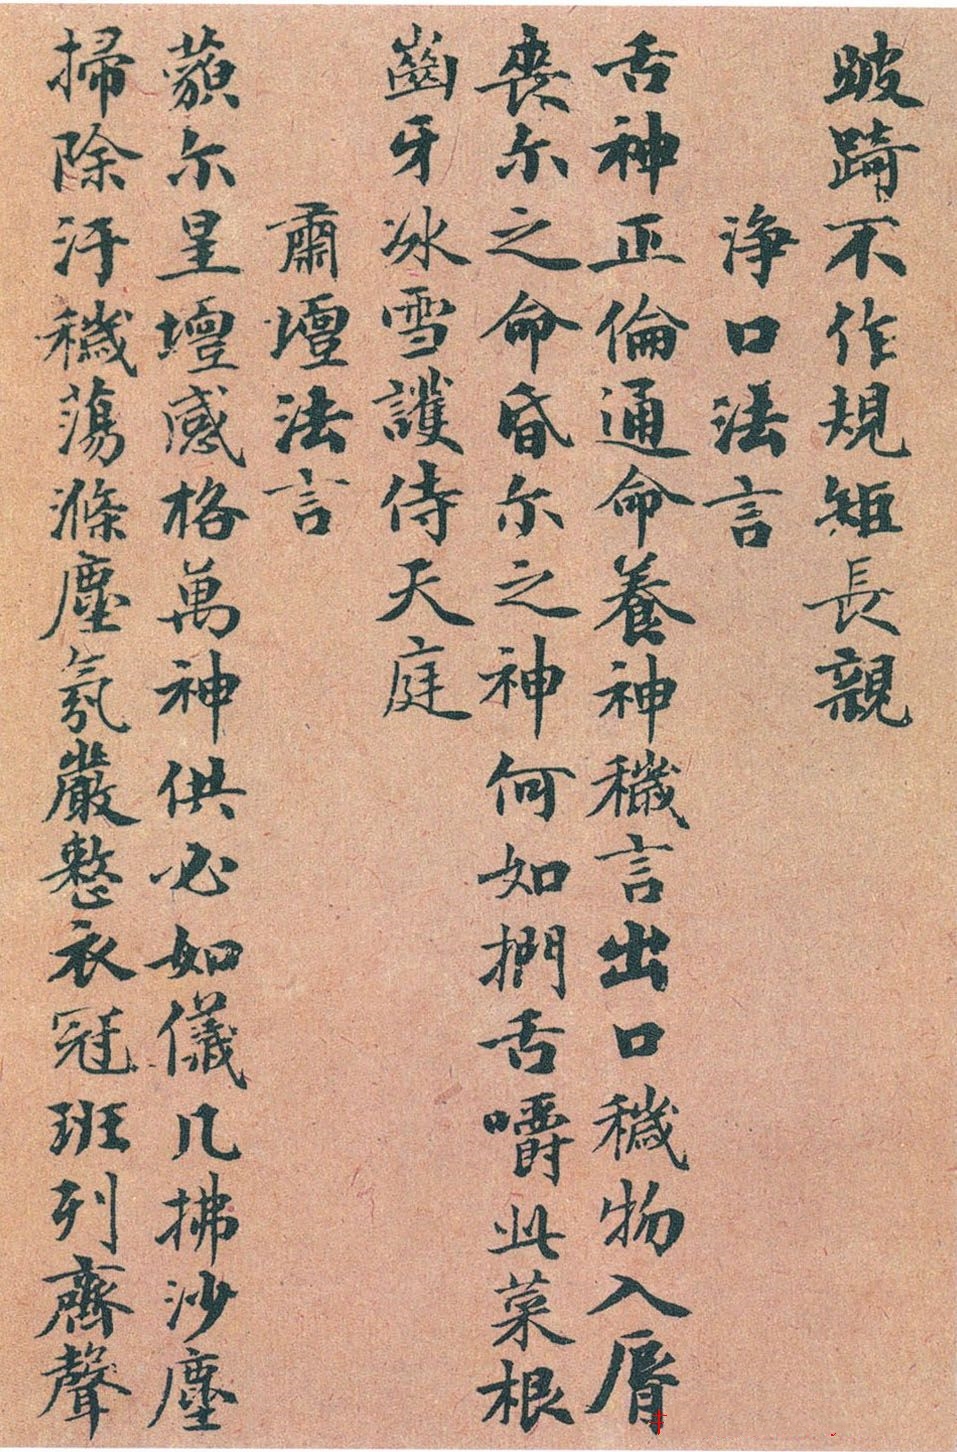 跛踦不作規矩長親
淨口法言
舌神正倫通命養神穢言出口穢物入脣
喪尔之命昏尔之神何如捫舌嚼此菜根
齒牙冰雪護侍天庭
肅壇法言
藐尔星壇感格萬神供必如儀几拂沙塵
掃除汙穢蕩滌塵氛嚴整衣冠班列齊聲